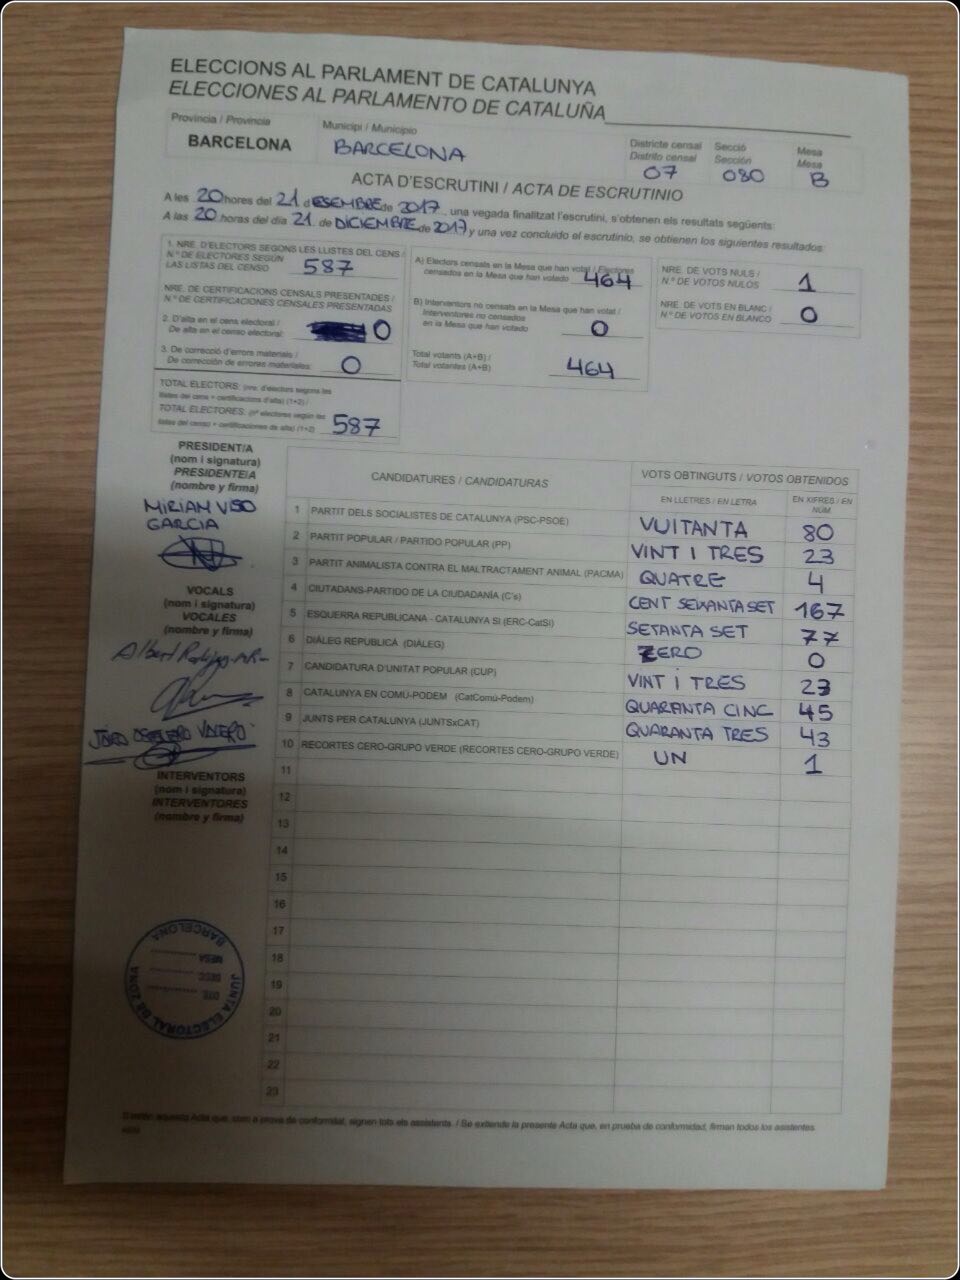 ELECCIONS AL PARLAMENT DE CATALUNYA
ELECCIONES AL PARLAMENTO DE CATALUÑA
Província / Provincia
BARCELONA
Municipi / Municipio
BARCELONA
Districte censal
Distrito censal
07
Secció
Sección
080
Mesa
Mesa
B
ACTA D'ESCRUTINI / ACTA DE ESCRUTINIO
A les 20 hores del 21 d ESEMBRE de 2017, una vegada finalitzat l'escrutini, s'obtenen els resultats següents:
A las 20 horas del día 21 de DICIEMBRE de 2017 y una vez concluido el escrutinio, se obtienen los siguientes resultados:
1. NRE. D'ELECTORS SEGONS LES LLISTES DEL CENS /
N.º DE ELECTORES SEGÚN
LAS LISTAS DEL CENSO 587
NRE. DE CERTIFICACIONS CENSALS PRESENTADES /
N.º DE CERTIFICACIONES CENSALES PRESENTADAS
2. D'alta en el cens electoral /
De alta en el censo electoral: 0
3. De correcció d'errors materials /
De corrección de errores materiales: 0
TOTAL ELECTORS: (nre. d'electors segons les
llistes del cens + certificacions d'alta) (1+2) /
TOTAL ELECTORES: (nº electores según las
listas del censo + certificaciones de alta) (1+2) 587
A) Electors censats en la Mesa que han votat / Electores
censados en la Mesa que han votado 464
B) Interventors no censats en la Mesa que han votat /
Interventores no censados
en la Mesa que han votado 0
Total votants (A+B) /
Total votantes (A+B) 464
NRE. DE VOTS NULS /
N.º DE VOTOS NULOS 1
NRE. DE VOTS EN BLANC /
N.º DE VOTOS EN BLANCO 0
PRESIDENT/A
(nom i signatura)
PRESIDENTE/A
(nombre y firma)
MIRIAM VISO
GARCIA
VOCALS
(nom i signatura)
VOCALES
(nombre y firma)
Albert
INTERVENTORS
(nom i signatura)
INTERVENTORES
(nombre y firma)
CANDIDATURES / CANDIDATURAS
VOTS OBTINGUTS / VOTOS OBTENIDOS
EN LLETRES / EN LETRA
EN XIFRES / EN
NÚM.
1 PARTIT DELS SOCIALISTES DE CATALUNYA (PSC-PSOE) VUITANTA 80
2 PARTIT POPULAR / PARTIDO POPULAR (PP) VINT I TRES 23
3 PARTIT ANIMALISTA CONTRA EL MALTRACTAMENT ANIMAL (PACMA) QUATRE 4
4 CIUTADANS-PARTIDO DE LA CIUDADANÍA (C's) CENT SEIXANTA SET 167
5 ESQUERRA REPUBLICANA - CATALUNYA SI (ERC-CatSí) SETANTA SET 77
6 DIÀLEG REPUBLICÀ (DIÀLEG) ZERO 0
7 CANDIDATURA D'UNITAT POPULAR (CUP) VINT I TRES 23
8 CATALUNYA EN COMÚ-PODEM (CatComú-Podem) QUARANTA CINC 45
9 JUNTS PER CATALUNYA (JUNTSxCAT) QUARANTA TRES 43
10 RECORTES CERO-GRUPO VERDE (RECORTES CERO-GRUPO VERDE) UN 1
11
12
13
14
15
16
17
18
19
20
21
22
23
JUNTA ELECTORAL DE ZONA
BARCELONA
DTE.
SECC.
MESA
S'estén aquesta Acta que, com a prova de conformitat, signen tots els assistents. / Se extiende la presente Acta que, en prueba de conformidad, firman todos los asistentes.